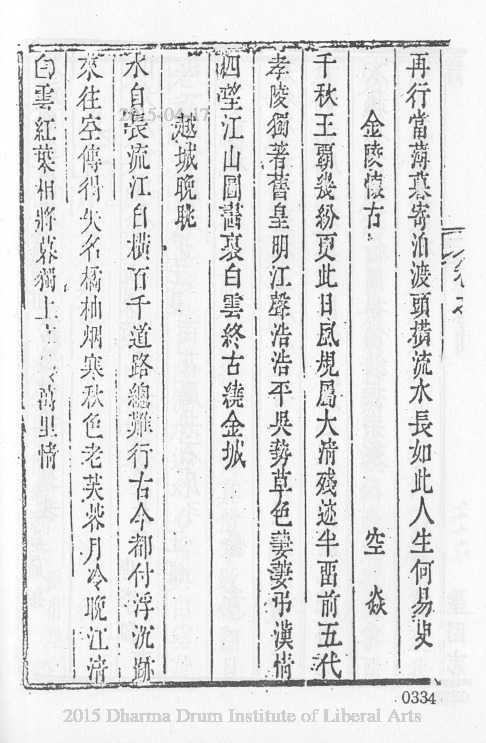 再行當薄暮寄泊渡頭橫流水長如此人生何易叟
金陵懷古 空焱
千秋王霸幾紛更此日風規屬大清殘迹半畱前五代
孝陵獨著舊皇明江聲浩浩平吳勢草色萋萋弔漢情
四望江山圖畫裏白雲終古繞金城
越城晚眺
水自長流江自橫百千道路總難行古今都付浮沉跡
來往空傳得失名橘柚烟寒秋色老芙蓉月冷晚江清
白雲紅葉相將暮獨上萬里情
2015-04-17
0334
2015 Dharma Drum Institute of Liberal Arts